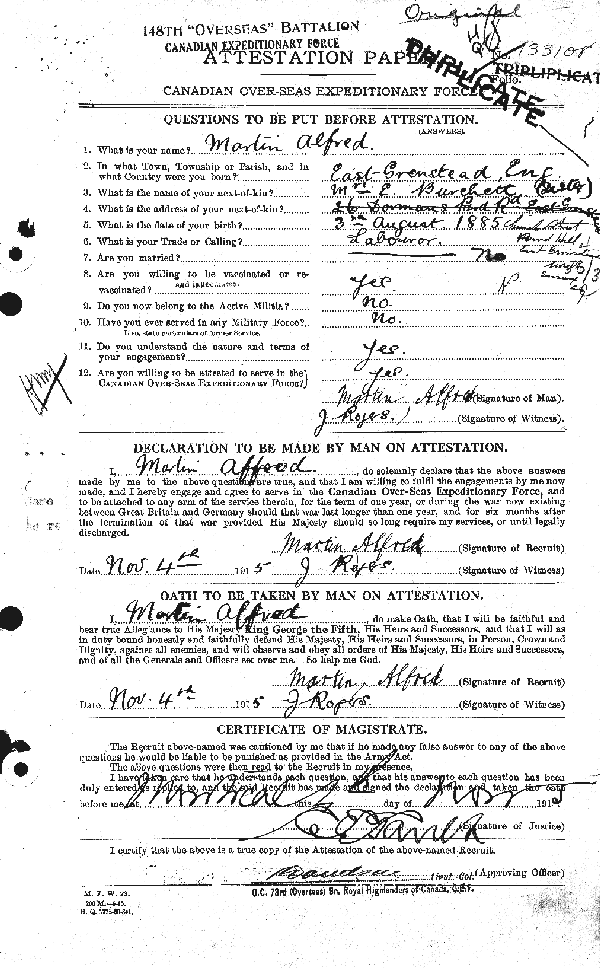 Original
148TH "OVERSEAS" BATTALION
CANADIAN EXPEDITIONARY FORCE
ATTESTATION PAPER
No. 133108
TRIPLICATE
Folio.
CANADIAN OVER-SEAS EXPEDITIONARY FORCE
QUESTIONS TO BE PUT BEFORE ATTESTATION.
(ANSWERS).
1. What is your name? Martin Alfred.
2. In what Town, Township or Parish, and in
what Country were you born? East Grenstead, Eng
3. What is the name of your next-of-kin? Mrs E. Burchett (Sister)
4. What is the address of your next-of-kin?
5. What is the date of your birth? 3rd August 1885
6. What is your Trade or Calling? Labouror.
7. Are you married? No
8. Are you willing to be vaccinated or re-
vaccinated? and inoculated? Yes
9. Do you now belong to the Active Militia? No
10. Have you ever served in any Military Force? No.
If so, state particulars of former Service.
11. Do you understand the nature and terms of
your engagement? Yes.
12. Are you willing to be attested to serve in the
CANADIAN OVER-SEAS EXPEDITIONARY FORCE? yes.
Martin Alfred (Signature of Man).
J Ropes. (Signature of Witness).
DECLARATION TO BE MADE BY MAN ON ATTESTATION.
I, Martin Alfred, do solemnly declare that the above answers
made by me to the above questions are true, and that I am willing to fulfil the engagements by me now
made, and I hereby engage and agree to serve in the Canadian Over-Seas Expeditionary Force, and
to be attached to any arm of the service therein, for the term of one year, or during the war now existing
between Great Britain and Germany should that war last longer than one year, and for six months after
the termination of that war provided His Majesty should so long require my services, or until legally
discharged.
Martin Alfred (Signature of Recruit)
Date Nov. 4th 1915 J Ropes. (Signature of Witness)
OATH TO BE TAKEN BY MAN ON ATTESTATION.
I, Martin Alfred, do make Oath, that I will be faithful and
bear true Allegiance to His Majesty King George the Fifth, His Heirs and Successors, and that I will as
in duty bound honestly and faithfully defend His Majesty, His Heirs and Successors, in Person, Crown and
Dignity, against all enemies, and will observe and obey all orders of His Majesty, His Heirs and Successors,
and of all the Generals and Officers set over me. So help me God.
Martin Alfred (Signature of Recruit)
Date Nov. 4th 1915 J Ropes. (Signature of Witness)
CERTIFICATE OF MAGISTRATE.
The Recruit above-named was cautioned by me that if he made any false answer to any of the above
questions he would be liable to be punished as provided in the Army Act.
The above questions were then read to the Recruit in my presence.
I have taken care that he understands each question, and that his answer to each question has been
duly entered as replied to, and the said Recruit has made and signed the declaration and taken the oath
before me, at Montreal this day of Nov 1915
(Signature of Justice)
I certify that the above is a true copy of the Attestation of the above-named Recruit.
Lieut.-Col. (Approving Officer)
O.C. 73rd (Overseas) Bn. Royal Highlanders of Canada, C.E.F.
M. F. W. 23.